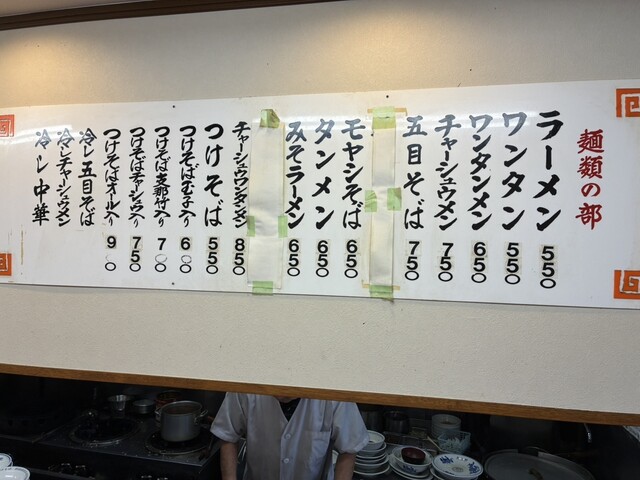 麺類の部
ラーメン 550
ワンタン 550
ワンタンメン 650
チャーシュウメン 750
五目そば 750
モヤシそば 650
タンメン 650
みそラーメン 650
チャーシュウワンタンメン 850
つけそば 550
つけそば玉子入り 600
つけそば支那竹入り 700
つけそばチャーシュウ入り 750
つけそばオール入り 900
冷し五目そば
冷しチャーシュウメン
冷し中華